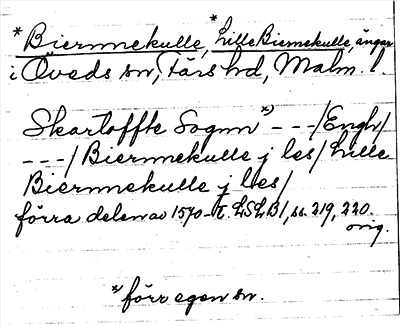 *Biermekulle, *Lille Biermekulle, ängar
i Öveds sn, Färs hd, Malm. l.
Skartoffte Sognn *) - - -/Engh/
- - -/Biermekulle j les/Lille
Biermekulle j les/
förra delen av 1570-t. LSLB1, ss. 219, 220.
orig.
*) förr egen sn.